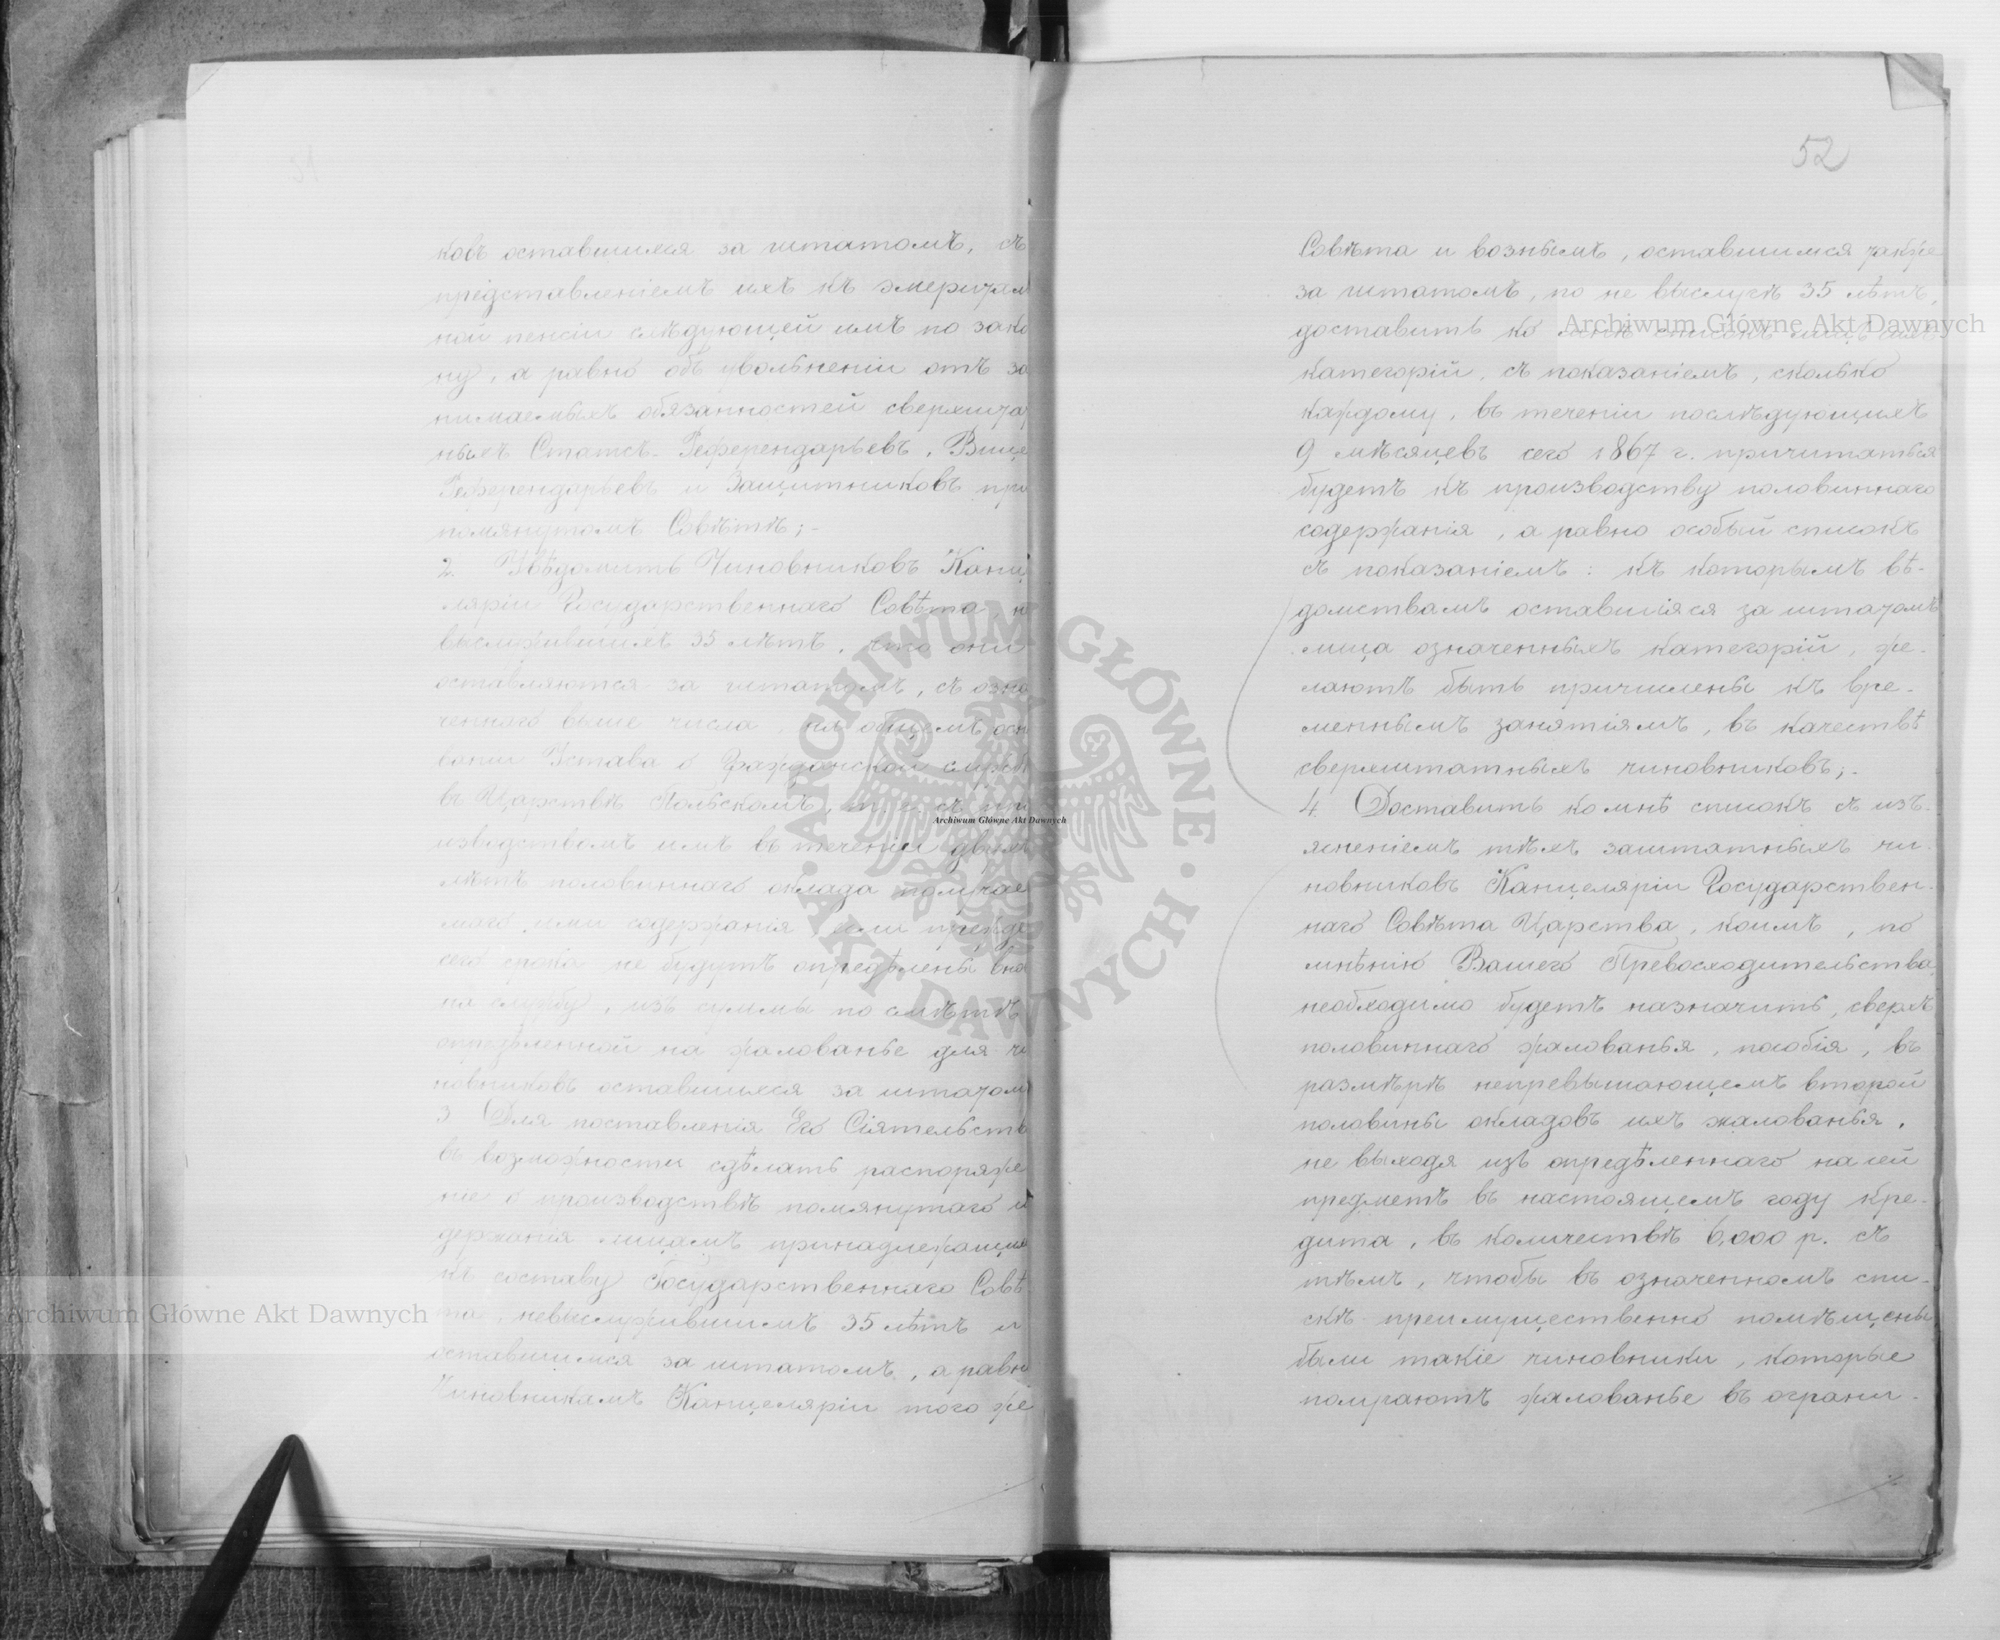 ковъ оставшихся за штатомъ, съ
представленіемъ ихъ къ эмеритал
ной пенсіи слѣдующей имъ по зако
ну, а равно объ увольненіи отъ за
нимаемыхъ обязанностей сверхшта
ныхъ Статсъ-Референдарьевъ, Вице
Референдарьевъ и Защитниковъ при
помянутомъ Совѣтѣ;-
2. Увѣдомить Чиновниковъ Канце
ляріи Государственнаго Совѣта, н
выслужившихъ 35 лѣтъ, что они
оставляются за штатомъ, съ озна
ченнаго выше числа, на общемъ осн
ваніи Устава о Гражданской служб
въ Царствѣ Польскомъ, т. е. съ про
изводствомъ имъ въ теченіи двухъ
лѣтъ половиннаго оклада получае
маго ими содержанія, если прежде
сего срока не будутъ опредѣлены вно
на службу, изъ суммы по смѣтѣ
опредѣленной на жалованье для чи
новниковъ оставшихся за штатом
3 Для поставленія Его Сіятельств
въ возможности сдѣлать распоряже
ніе о производствѣ помянутаго
держанія лицамъ принадлежащим
къ составу Государственнаго Совѣ
та, невыслужившимъ 35 лѣтъ и
оставшимся за штатомъ, а равн
Чиновникамъ Канцеляріи того же
52
Совѣта и вознымъ, оставшимся также
за штатомъ, по не выслугѣ 35 лѣтъ,
доставить ко мнѣ списокъ лицъ
категорій, съ показаніемъ, сколько
каждому, въ теченіи послѣдующихъ
9 мѣсяцевъ сего 1867 г. причитаться
будетъ къ производству половиннаго
содержанія, а равно особый списокъ
съ показаніемъ: къ которымъ вѣ-
домствамъ оставшіяся за штатомъ
лица означенныхъ категорій, же-
лаютъ быть причислены къ вре-
меннымъ занятіямъ, въ качествѣ
сверхштатныхъ чиновниковъ;-
4. Доставить ко мнѣ списокъ съ изъ-
ясненіемъ тѣхъ заштатныхъ чи-
новниковъ Канцеляріи Государствен-
наго Совѣта Царства, коимъ, по
мнѣнію Вашего Превосходительства,
необходимо будетъ назначить, сверхъ
половиннаго жалованья, пособія, въ
размѣрѣ непревышающемъ второй
половины окладовъ ихъ жалованья,
не выходя изъ опредѣленнаго на сей
предметъ въ настоящемъ году кре-
дита, въ количествѣ 6,000 р. съ
тѣмъ, чтобы въ означенномъ спи-
скѣ преимущественно помѣщены
были такіе чиновники, которые
получаютъ жалованье въ ограни-
Archiwum Główne Akt Dawnych
Archiwum Główne Akt Dawnych
Archiwum Główne Akt Dawnych
ARCHIWUM GŁÓWNE · AKT DAWNYCH ·